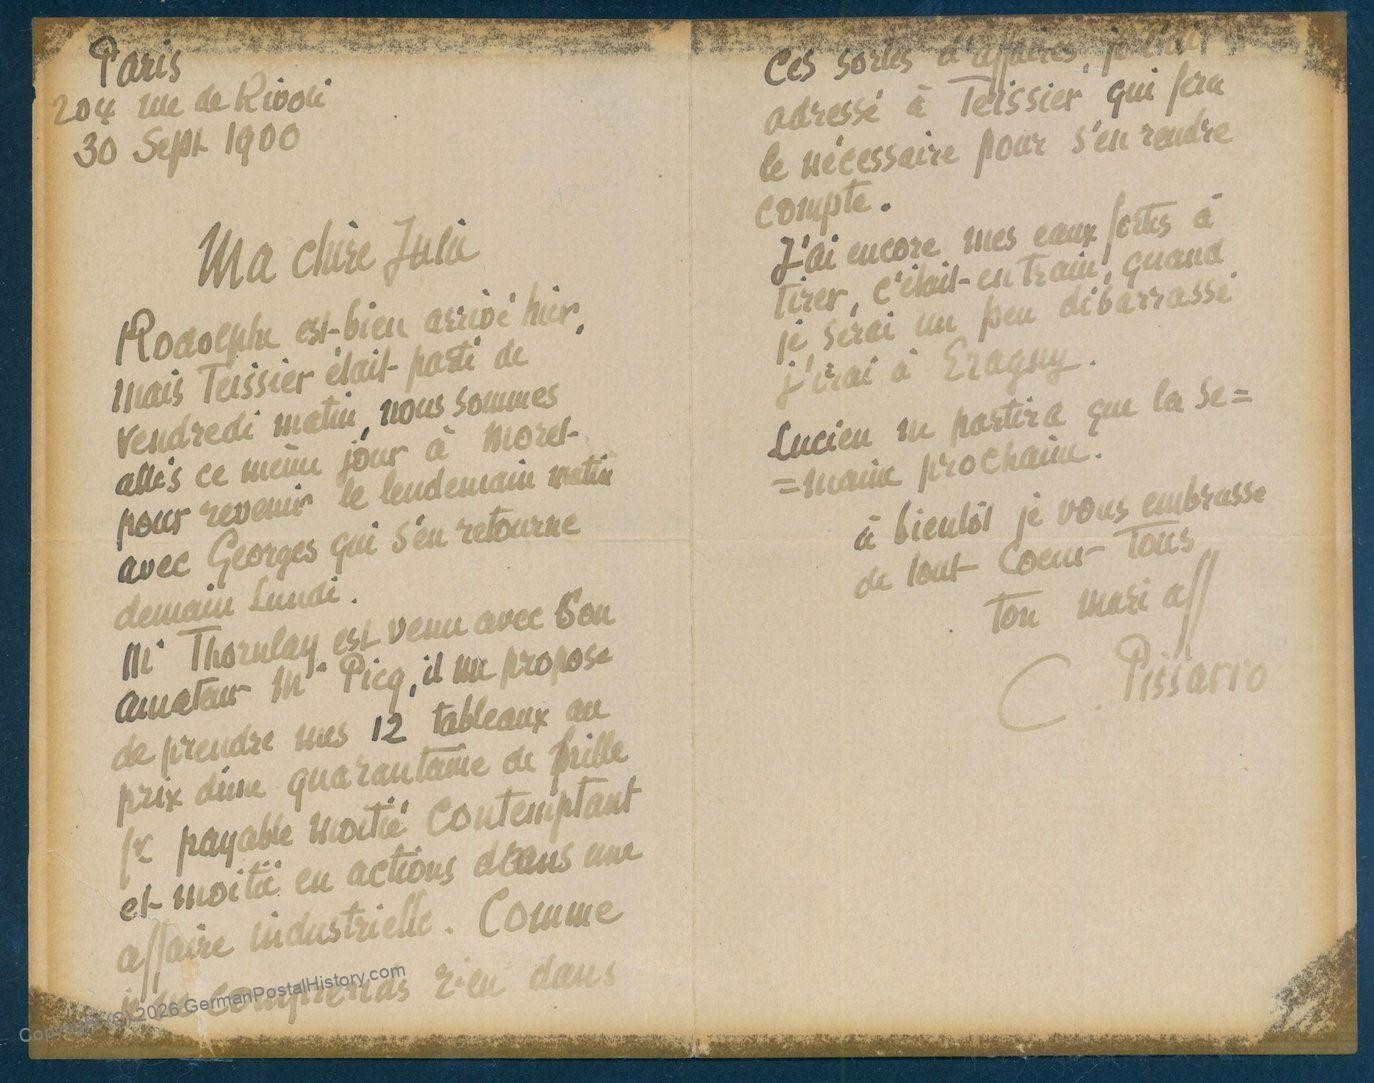 Paris
204 rue de Rivoli
30 Sept 1900
Ma chère Julie
Rodolphe est bien arrivé hier,
mais Teissier était parti de
vendredi matin, nous sommes
allés ce même jour à Moret
pour revenir le lendemain matin
avec Georges qui s'en retourne
demain Lundi.
Mr Thornlay est venu avec son
amateur Mr Picq, il me propose
de prendre mes 12 tableaux au
prix d'une quarantaine de mille
fr payable moitié contemptant
et moitié en actions dans une
affaire industrielle. Comme
je ne comprends rien dans
ces sortes d'affaires, je l'ai
adressé à Teissier qui fera
le nécessaire pour s'en rendre
compte.
J'ai encore mes eaux fortes à
tirer, c'était en train, quand
je serai un peu débarrassé
j'irai à Eragny.
Lucien ne partira que la se=
=maine prochaine.
à bientôt je vous embrasse
de tout coeur tous
ton mari aff
C. Pissarro
Copyright (C) 2026 GermanPostalHistory.com